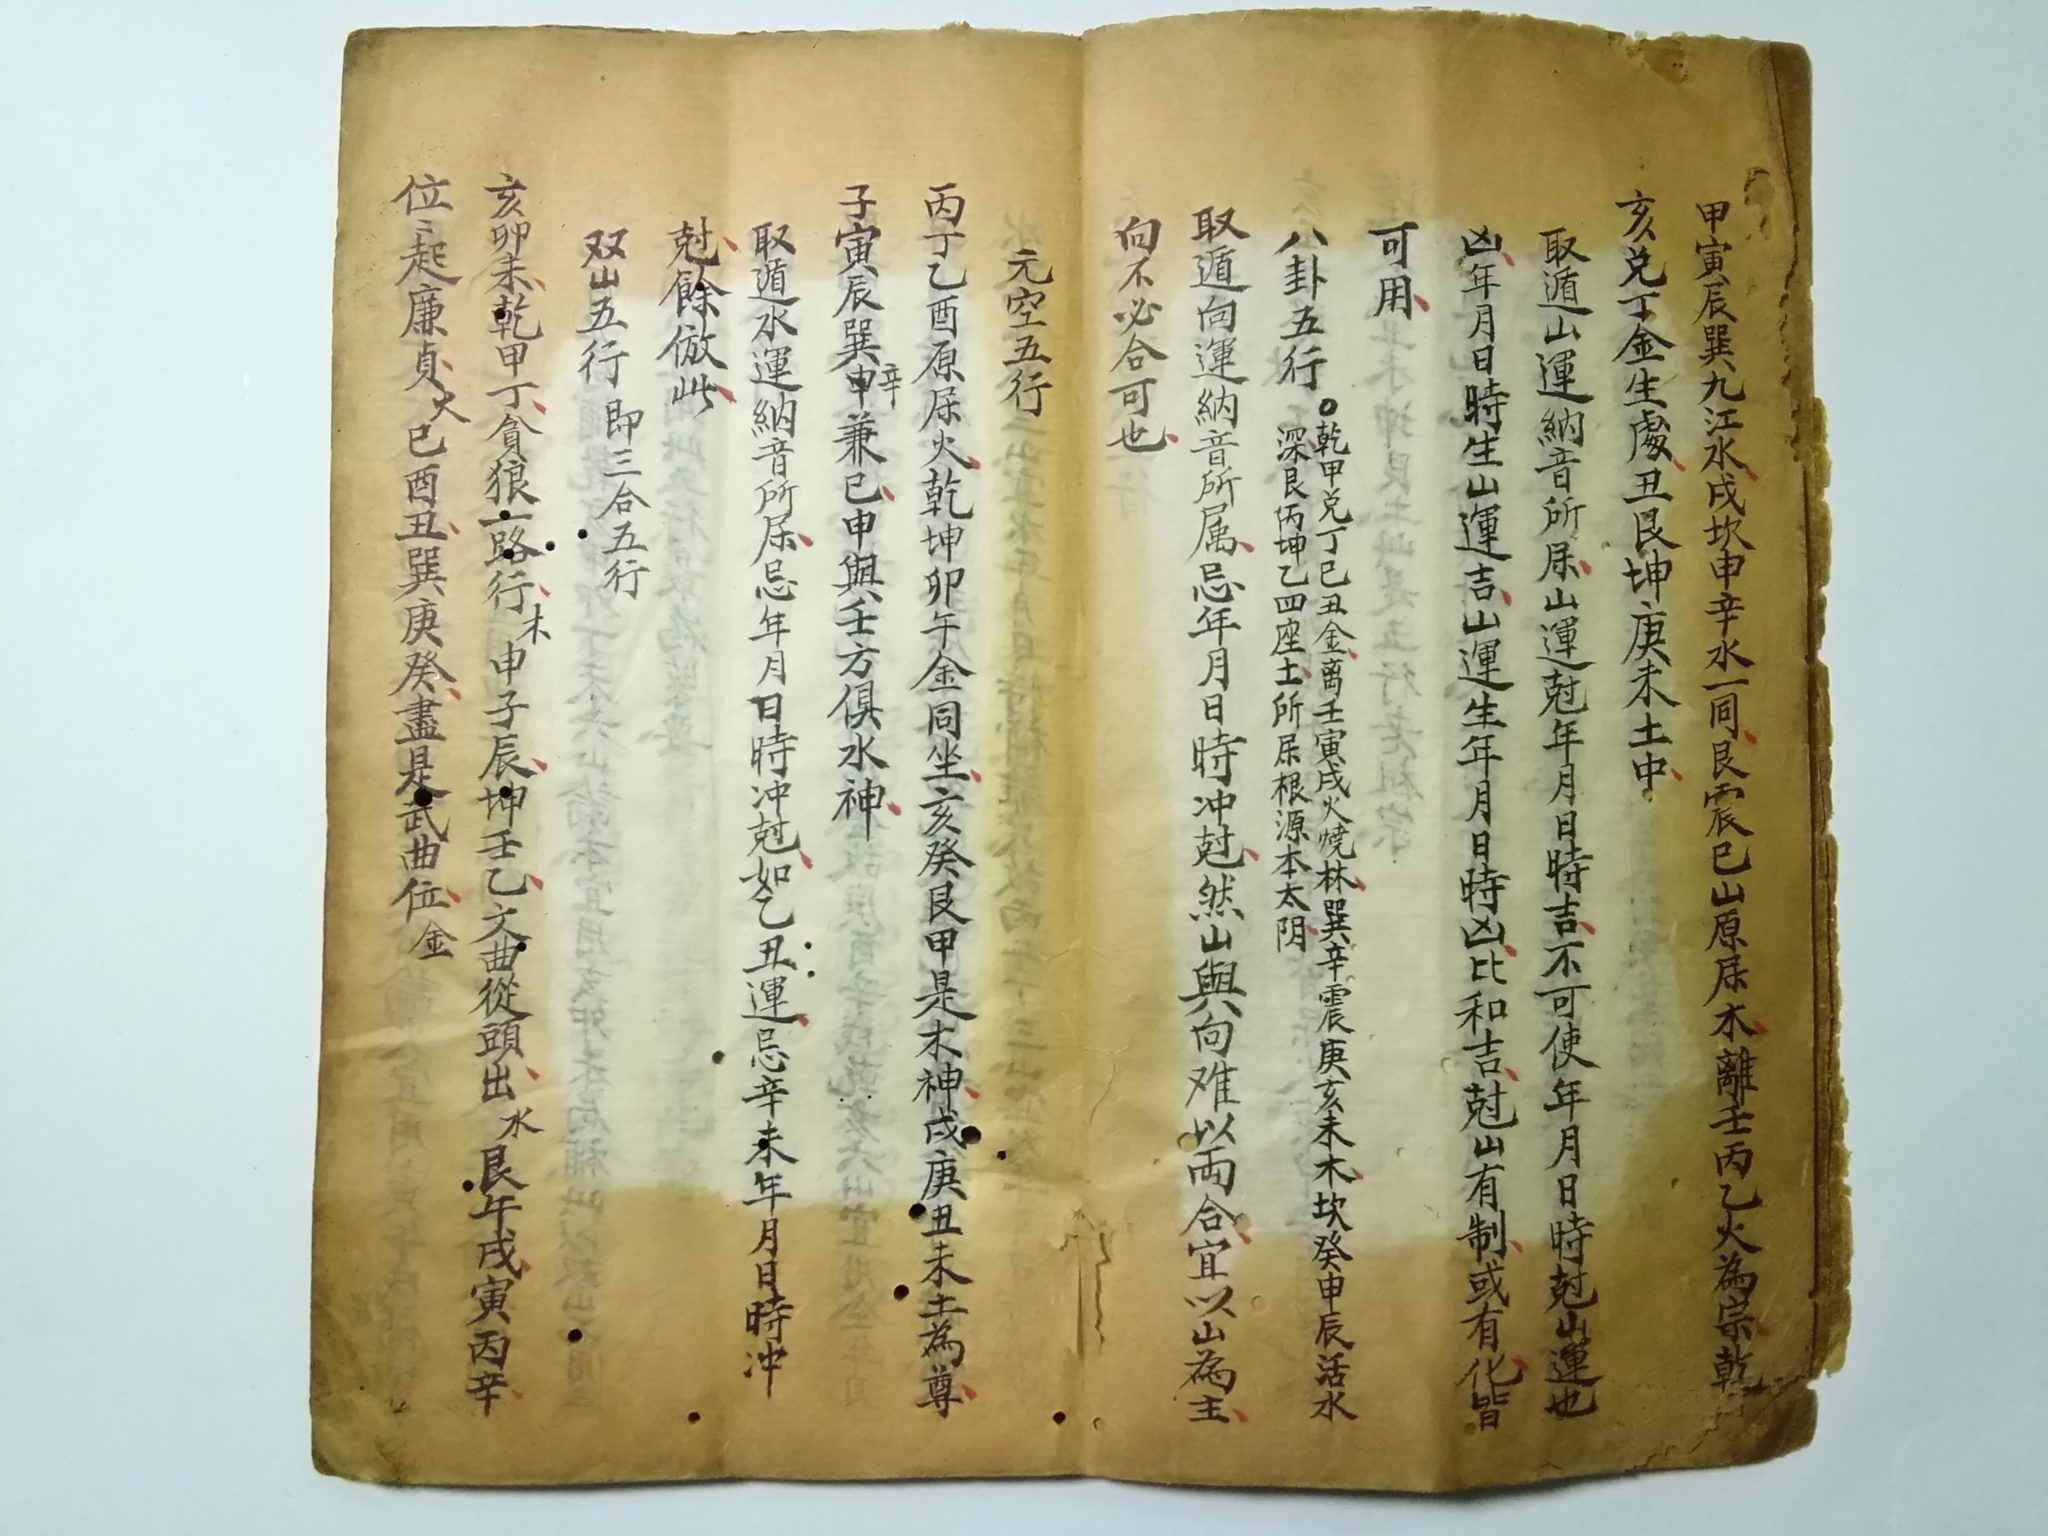 甲寅辰巽九江水戌坎申辛水一同艮震巳山原屌木離壬丙乙火為宗乾
亥兑丁金生處丑艮坤庚未土中
取遁山運納音所屌山運尅年月日時吉不可使年月日時尅山運也
凶年月日時生山運吉山運生年月日時凶比和吉尅山有制或有化皆
可用
八卦五行
乾甲兑丁巳丑金离壬寅戌火燒林巽辛震庚亥未木坎癸申辰活水
深艮丙坤乙四座土所屌根源本太阴
取遁向運納音所属忌年月日時冲尅然山與向难以兩合宜以山為主
向不必合可也
元空五行
丙丁乙酉原屌火乾坤卯午金同坐亥癸艮甲是木神戌庚丑未土為尊
子寅辰巽申辛兼巳申與壬方俱水神
取遁水運納音所屌忌年月日時冲尅如乙丑運忌辛未年月日時冲
尅餘倣此
双山五行 即三合五行
亥卯未乾甲丁貪狼一路行木申子辰坤壬乙文曲從頭出水艮午戌寅丙辛
位〻起廉貞火巳酉丑巽庚癸盡是武曲位金